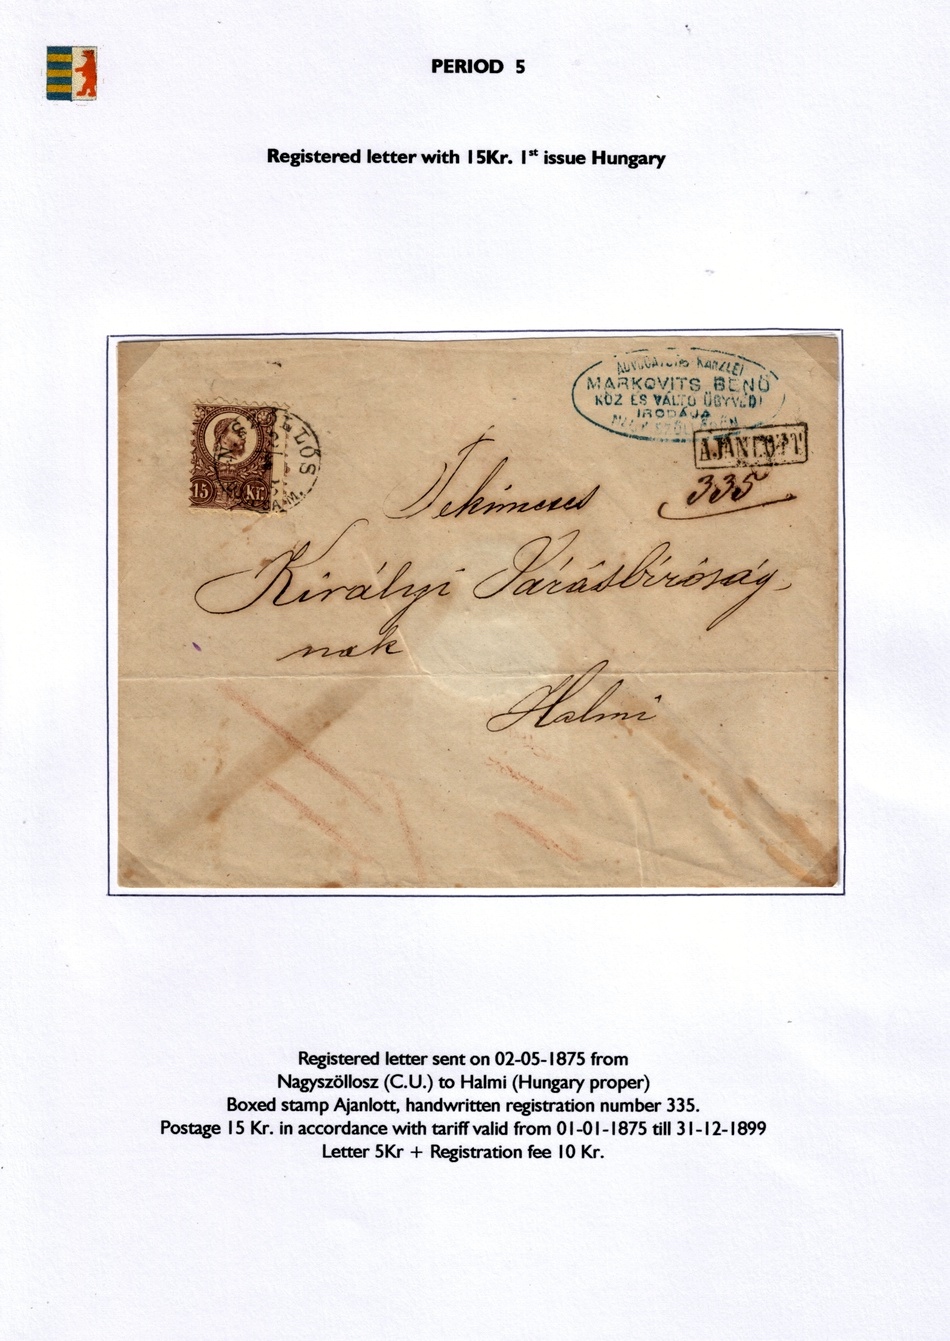 PERIOD 5
Registered letter with 15Kr. 1st issue Hungary
ADVOCATURS KANZLEI
MARKOVITS BENŐ
KÖZ ÉS VÁLTÓ ÜGYVÉDI
IRODÁJA
AJÁNLOTT
335
15 Kr.
Tekintetes
Királyi Járásbíróság
nak
Halmi
Registered letter sent on 02-05-1875 from
Nagyszöllosz (C.U.) to Halmi (Hungary proper)
Boxed stamp Ajanlott, handwritten registration number 335.
Postage 15 Kr. in accordance with tariff valid from 01-01-1875 till 31-12-1899
Letter 5Kr + Registration fee 10 Kr.